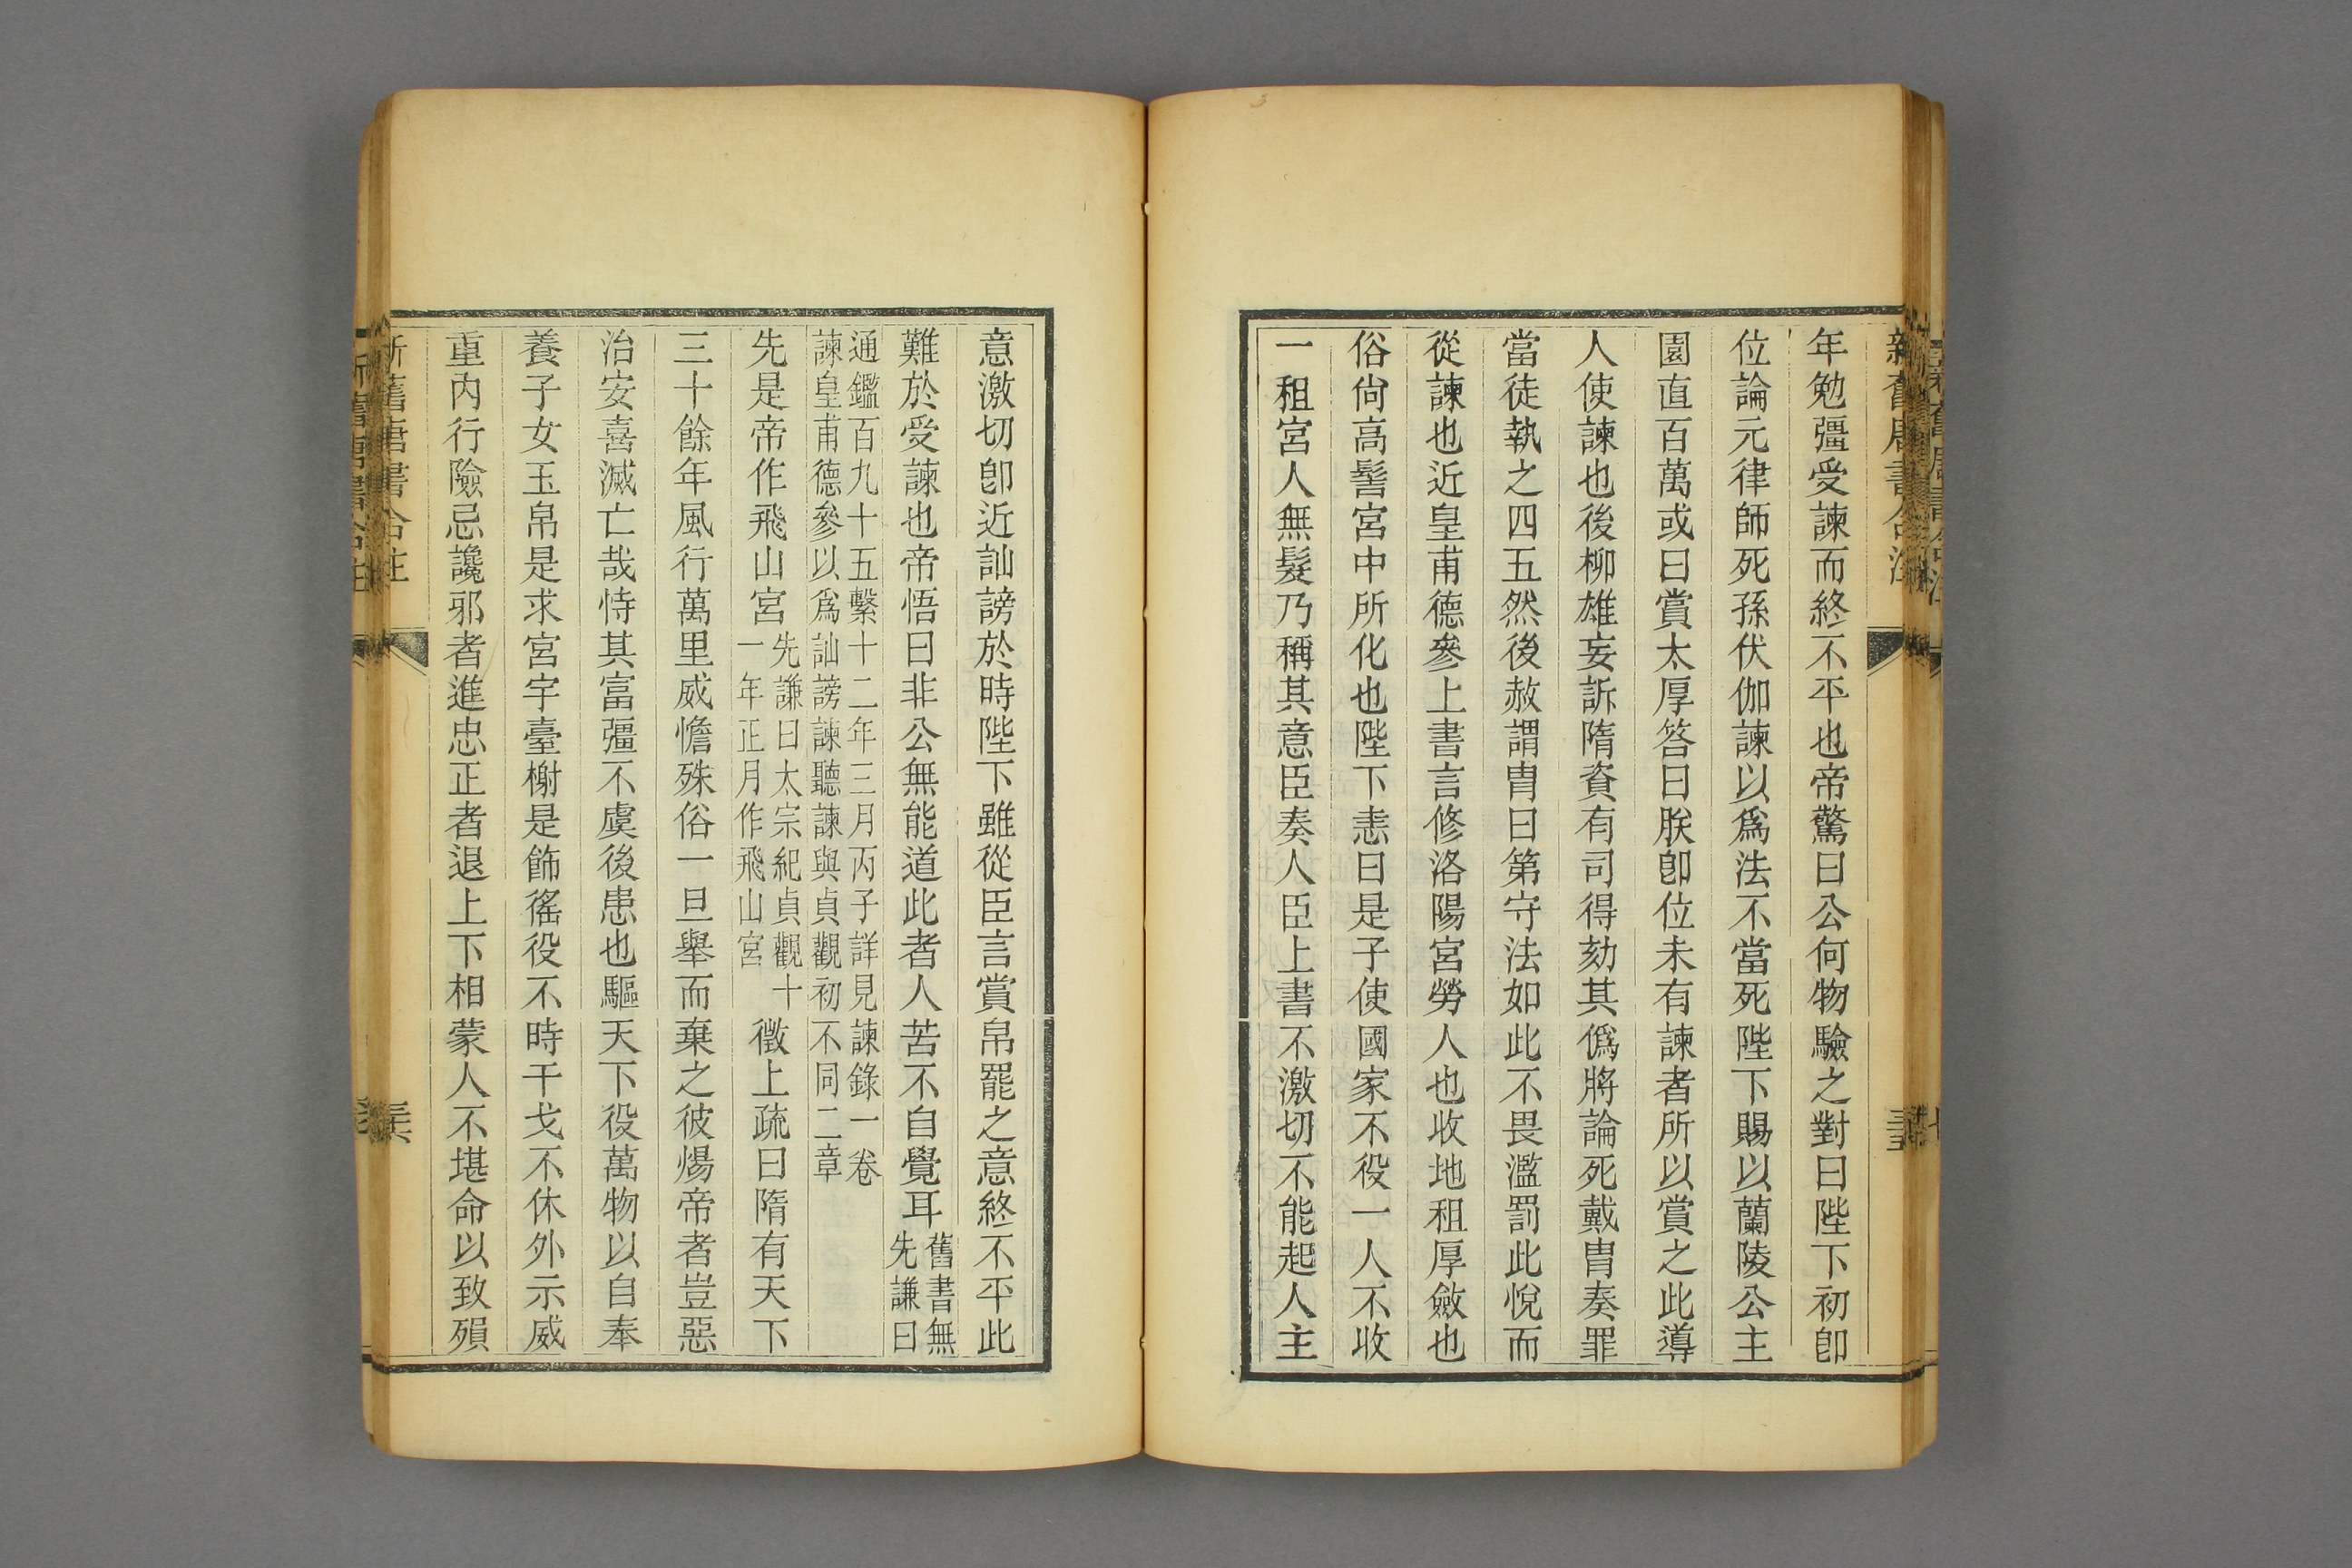 年勉彊受諫而終不平也帝驚曰公何物驗之對曰陛下初卽
位論元律師死孫伏伽諫以爲法不當死陛下賜以蘭陵公主
園直百萬或曰賞太厚答曰朕卽位未有諫者所以賞之此導
人使諫也後柳雄妄訴隋資有司得劾其僞將論死戴冑奏罪
當徒執之四五然後赦謂冑曰第守法如此不畏濫罰此悅而
從諫也近皇甫德參上書言修洛陽宮勞人也收地租厚斂也
俗尙高髻宮中所化也陛下恚曰是子使國家不役一人不收
一租宮人無髮乃稱其意臣奏人臣上書不激切不能起人主
意激切卽近訕謗於時陛下雖從臣言賞帛罷之意終不平此
難於受諫也帝悟曰非公無能道此者人苦不自覺耳舊書無先謙曰
通鑑百九十五繫十二年三月丙子詳見諫錄一卷
諫皇甫德參以爲訕謗諫聽諫與貞觀初不同二章
先是帝作飛山宮先謙曰太宗紀貞觀十一年正月作飛山宮徵上疏曰隋有天下
三十餘年風行萬里威憺殊俗一旦舉而棄之彼煬帝者豈惡
治安喜滅亡哉恃其富彊不虞後患也驅天下役萬物以自奉
養子女玉帛是求宮宇臺榭是飾徭役不時干戈不休外示威
重內行險忌讒邪者進忠正者退上下相蒙人不堪命以致殞
新舊唐書合注